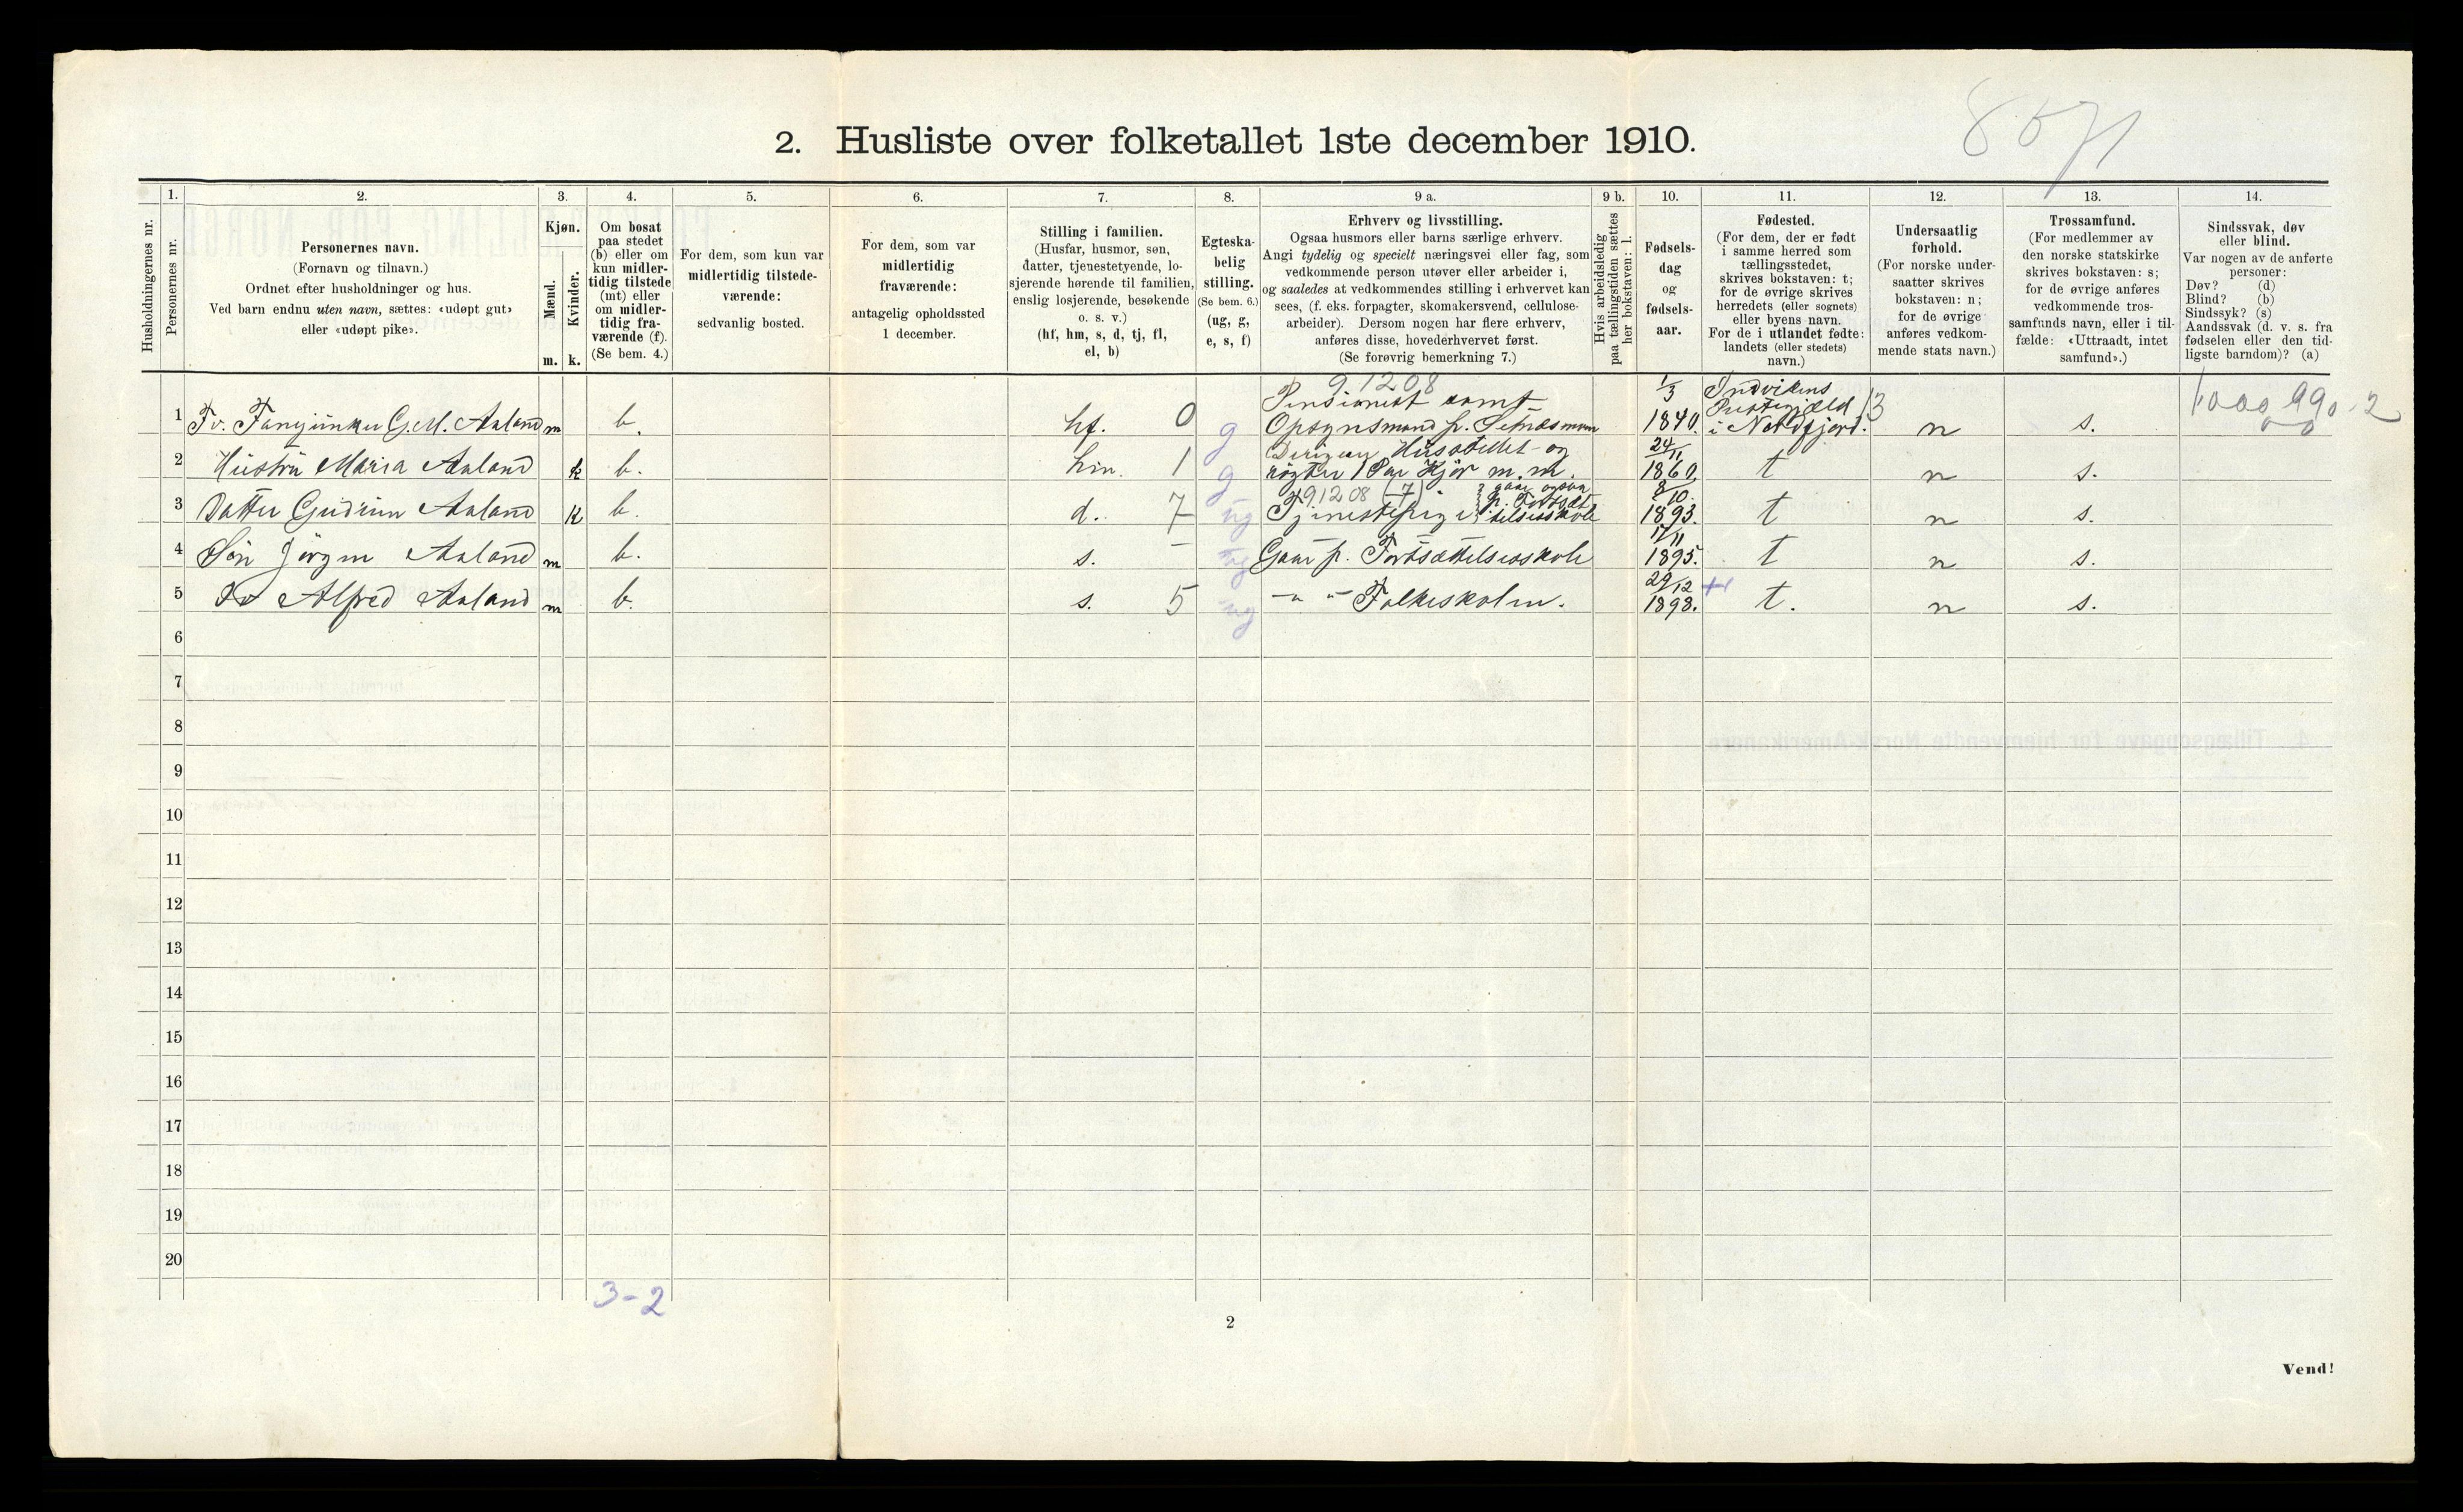 8571
2. Husliste over folketallet 1ste december 1910.
Husholdningernes nr.
1.
Personernes nr.
2.
Personernes navn.
(Fornavn og tilnavn.)
Ordnet efter husholdninger og hus.
Ved barn endnu uten navn, sættes: «udøpt gut»
eller «udøpt pike».
3.
Kjøn.
Mænd.
Kvinder.
m. k.
4.
Om bosat
paa stedet
(b) eller om
kun midler-
tidig tilstede
(mt) eller
om midler-
tidig fra-
værende (f).
(Se bem. 4.)
5.
For dem, som kun var
midlertidig tilstede-
værende:
sedvanlig bosted.
6.
For dem, som var
midlertidig
fraværende:
antagelig opholdssted
1 december.
7.
Stilling i familien.
(Husfar, husmor, søn,
datter, tjenestetyende, lo-
sjerende hørende til familien,
enslig losjerende, besøkende
o. s. v.)
(hf, hm, s, d, tj, fl,
el, b)
8.
Egteska-
belig
stilling.
(Se bem. 6.)
(ug, g,
e, s, f)
9 a.
Erhverv og livsstilling.
Ogsaa husmors eller barns særlige erhverv.
Angi tydelig og specielt næringsvei eller fag, som
vedkommende person utøver eller arbeider i,
og saaledes at vedkommendes stilling i erhvervet kan
sees, (f. eks. forpagter, skomakersvend, cellulose-
arbeider). Dersom nogen har flere erhverv,
anføres disse, hovederhvervet først.
(Se forøvrig bemerkning 7.)
9 b.
Hvis arbeidsledig
paa tællingstiden sættes
her bokstaven: l.
10.
Fødsels-
dag
og
fødsels-
aar.
11.
Fødested.
(For dem, der er født
i samme herred som
tællingsstedet,
skrives bokstaven: t;
for de øvrige skrives
herredets (eller sognets)
eller byens navn.
For de i utlandet fødte:
landets (eller stedets)
navn.)
12.
Undersaatlig
forhold.
(For norske under-
saatter skrives
bokstaven: n;
for de øvrige
anføres vedkom-
mende stats navn.)
13.
Trossamfund.
(For medlemmer av
den norske statskirke
skrives bokstaven: s;
for de øvrige anføres
vedkommende tros-
samfunds navn, eller i til-
fælde: «Uttraadt, intet
samfund».)
14.
Sindssvak, døv
eller blind.
Var nogen av de anførte
personer:
Døv? (d)
Blind? (b)
Sindssyk? (s)
Aandssvak (d. v. s. fra
fødselen eller den tid-
ligste barndom)? (a)
9.12.08
1 Fv. Fanejunker G.M. Aaland m b. hf. 0 g Pensionist samt Opsynsmand p. Setnæsmoen 1/3 1840. Indvikens Prestegjæld i Nordfjord. 13 n s.
2 Hustru Maria Aaland k b. hm. 1 g Dirigerer Husstellet og røgter 1 Par Kjør m. m. 24/11 1860. t n s.
91208 (7)
3 Datter Gudrun Aaland k b. d. 7 ug Tjenestepige gaar ogsaa p. Fortsættelsesskole 8/10 1893. t n s.
4 Søn Jörgen Aaland m b. s. – ug Gaar p. Fortsættelsesskole 17/11 1895. t n s.
5 Do Alfred Aaland m b. s. 5 ug – " – Folkeskolen. 29/12 1898. t. n s.
6
7
8
9
10
11
12
13
14
15
16
17
18
19
20
3-2
2
Vend!